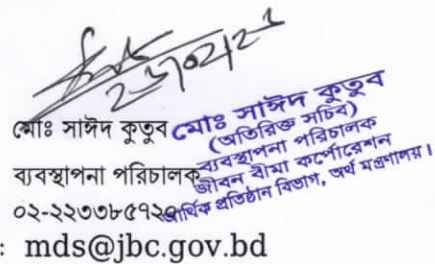 মোঃ সাঈদ কুতুব
ব্যবস্থাপনা পরিচালক
০২-২২৩৩৮৫৭২০
: mds@jbc.gov.bd
মোঃ সাঈদ কুতুব
(অতিরিক্ত সচিব)
ব্যবস্থাপনা পরিচালক
জীবন বীমা কর্পোরেশন
আর্থিক প্রতিষ্ঠান বিভাগ, অর্থ মন্ত্রণালয়।